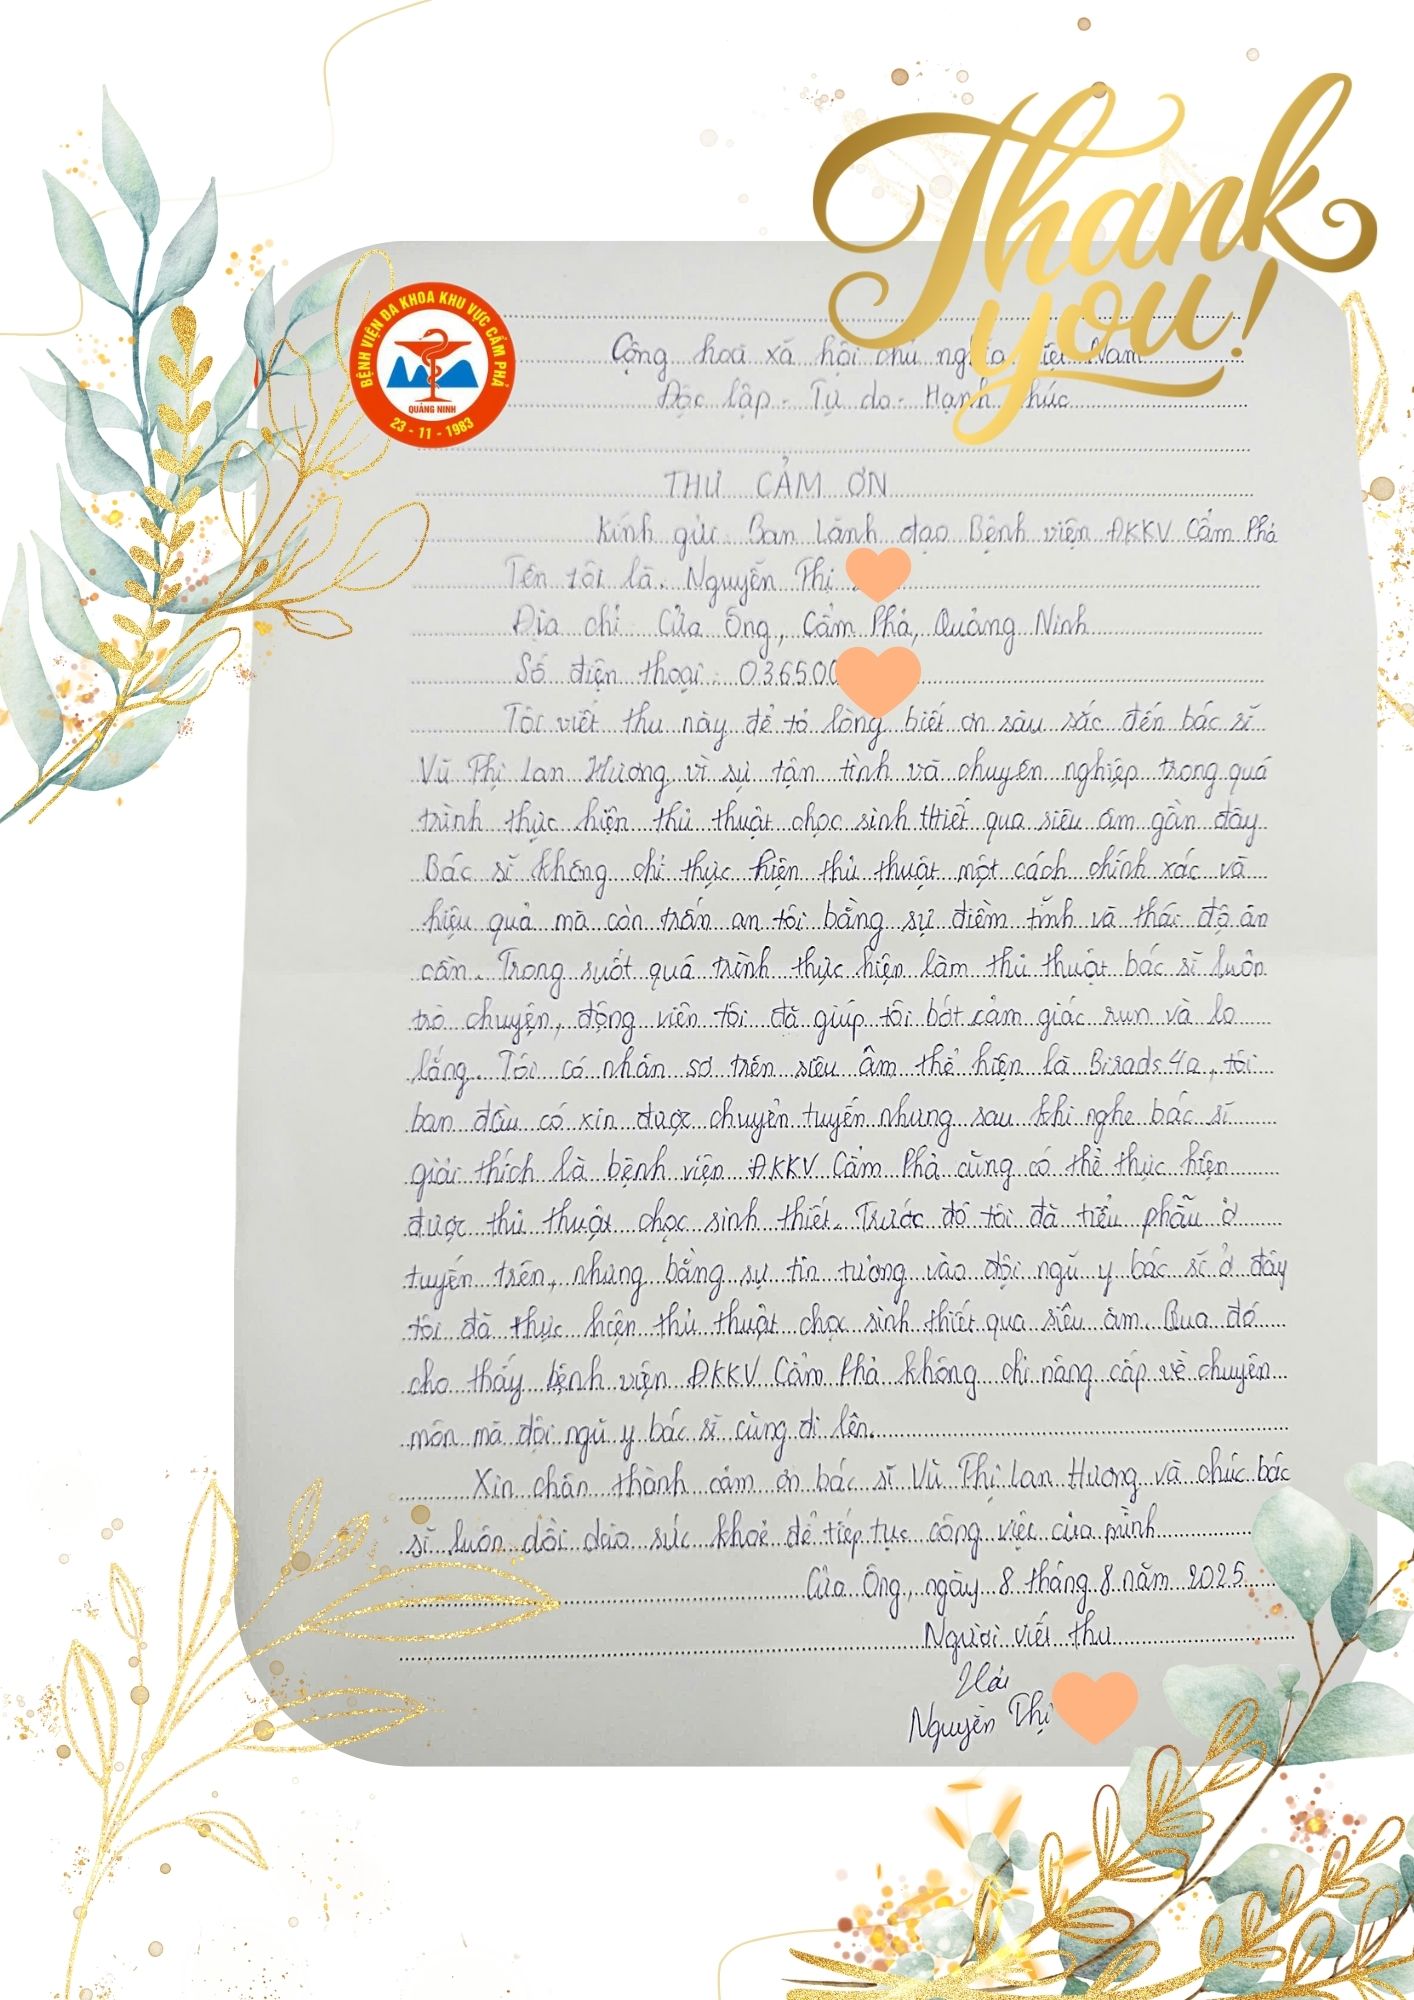 Thank
you!
BỆNH VIỆN ĐA KHOA KHU VỰC CẨM PHẢ
QUẢNG NINH
23 - 11 - 1983
Cộng hoà xã hội chủ nghĩa Việt Nam
Độc lập - Tự do - Hạnh Phúc
THƯ CẢM ƠN
Kính gửi: Ban lãnh đạo Bệnh viện ĐKKV Cẩm Phả
Tên tôi là: Nguyễn Thị
Địa chỉ: Cửa Ông, Cẩm Phả, Quảng Ninh
Số điện thoại: 036500
Tôi viết thư này để tỏ lòng biết ơn sâu sắc đến bác sĩ
Vũ Thị Lan Hương vì sự tận tình và chuyên nghiệp trong quá
trình thực hiện thủ thuật chọc sinh thiết qua siêu âm gần đây
Bác sĩ không chỉ thực hiện thủ thuật một cách chính xác và
hiệu quả mà còn trấn an tôi bằng sự điềm tĩnh và thái độ ân
cần. Trong suốt quá trình thực hiện làm thủ thuật bác sĩ luôn
trò chuyện, động viên tôi đã giúp tôi bớt cảm giác run và lo
lắng. Tôi có nhân sơ trên siêu âm thể hiện là Birads 4a, tôi
ban đầu có xin được chuyển tuyến nhưng sau khi nghe bác sĩ
giải thích là bệnh viện ĐKKV Cẩm Phả cũng có thể thực hiện
được thủ thuật chọc sinh thiết. Trước đó tôi đã tiểu phẫu ở
tuyến trên, nhưng bằng sự tin tưởng vào đội ngũ y bác sĩ ở đây
tôi đã thực hiện thủ thuật chọc sinh thiết qua siêu âm. Qua đó
cho thấy bệnh viện ĐKKV Cẩm Phả không chỉ nâng cấp về chuyên
môn mà đội ngũ y bác sĩ cũng đi lên.
Xin chân thành cảm ơn bác sĩ Vũ Thị Lan Hương và chúc bác
sĩ luôn dồi dào sức khoẻ để tiếp tục công việc của mình
Cửa Ông, ngày 8 tháng 8 năm 2025
Người viết thư
Hải
Nguyễn Thị